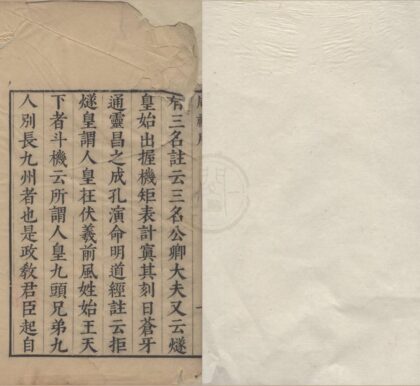 有三名註云三名公卿大夫又云燧
皇始出握機矩表計寘其刻曰蒼牙
通靈昌之成孔演命明道經註云拒
燧皇謂人皇在伏羲前風姓始王天
下者斗機云所謂人皇九頭兄弟九
人別長九州者也是政教君臣起自